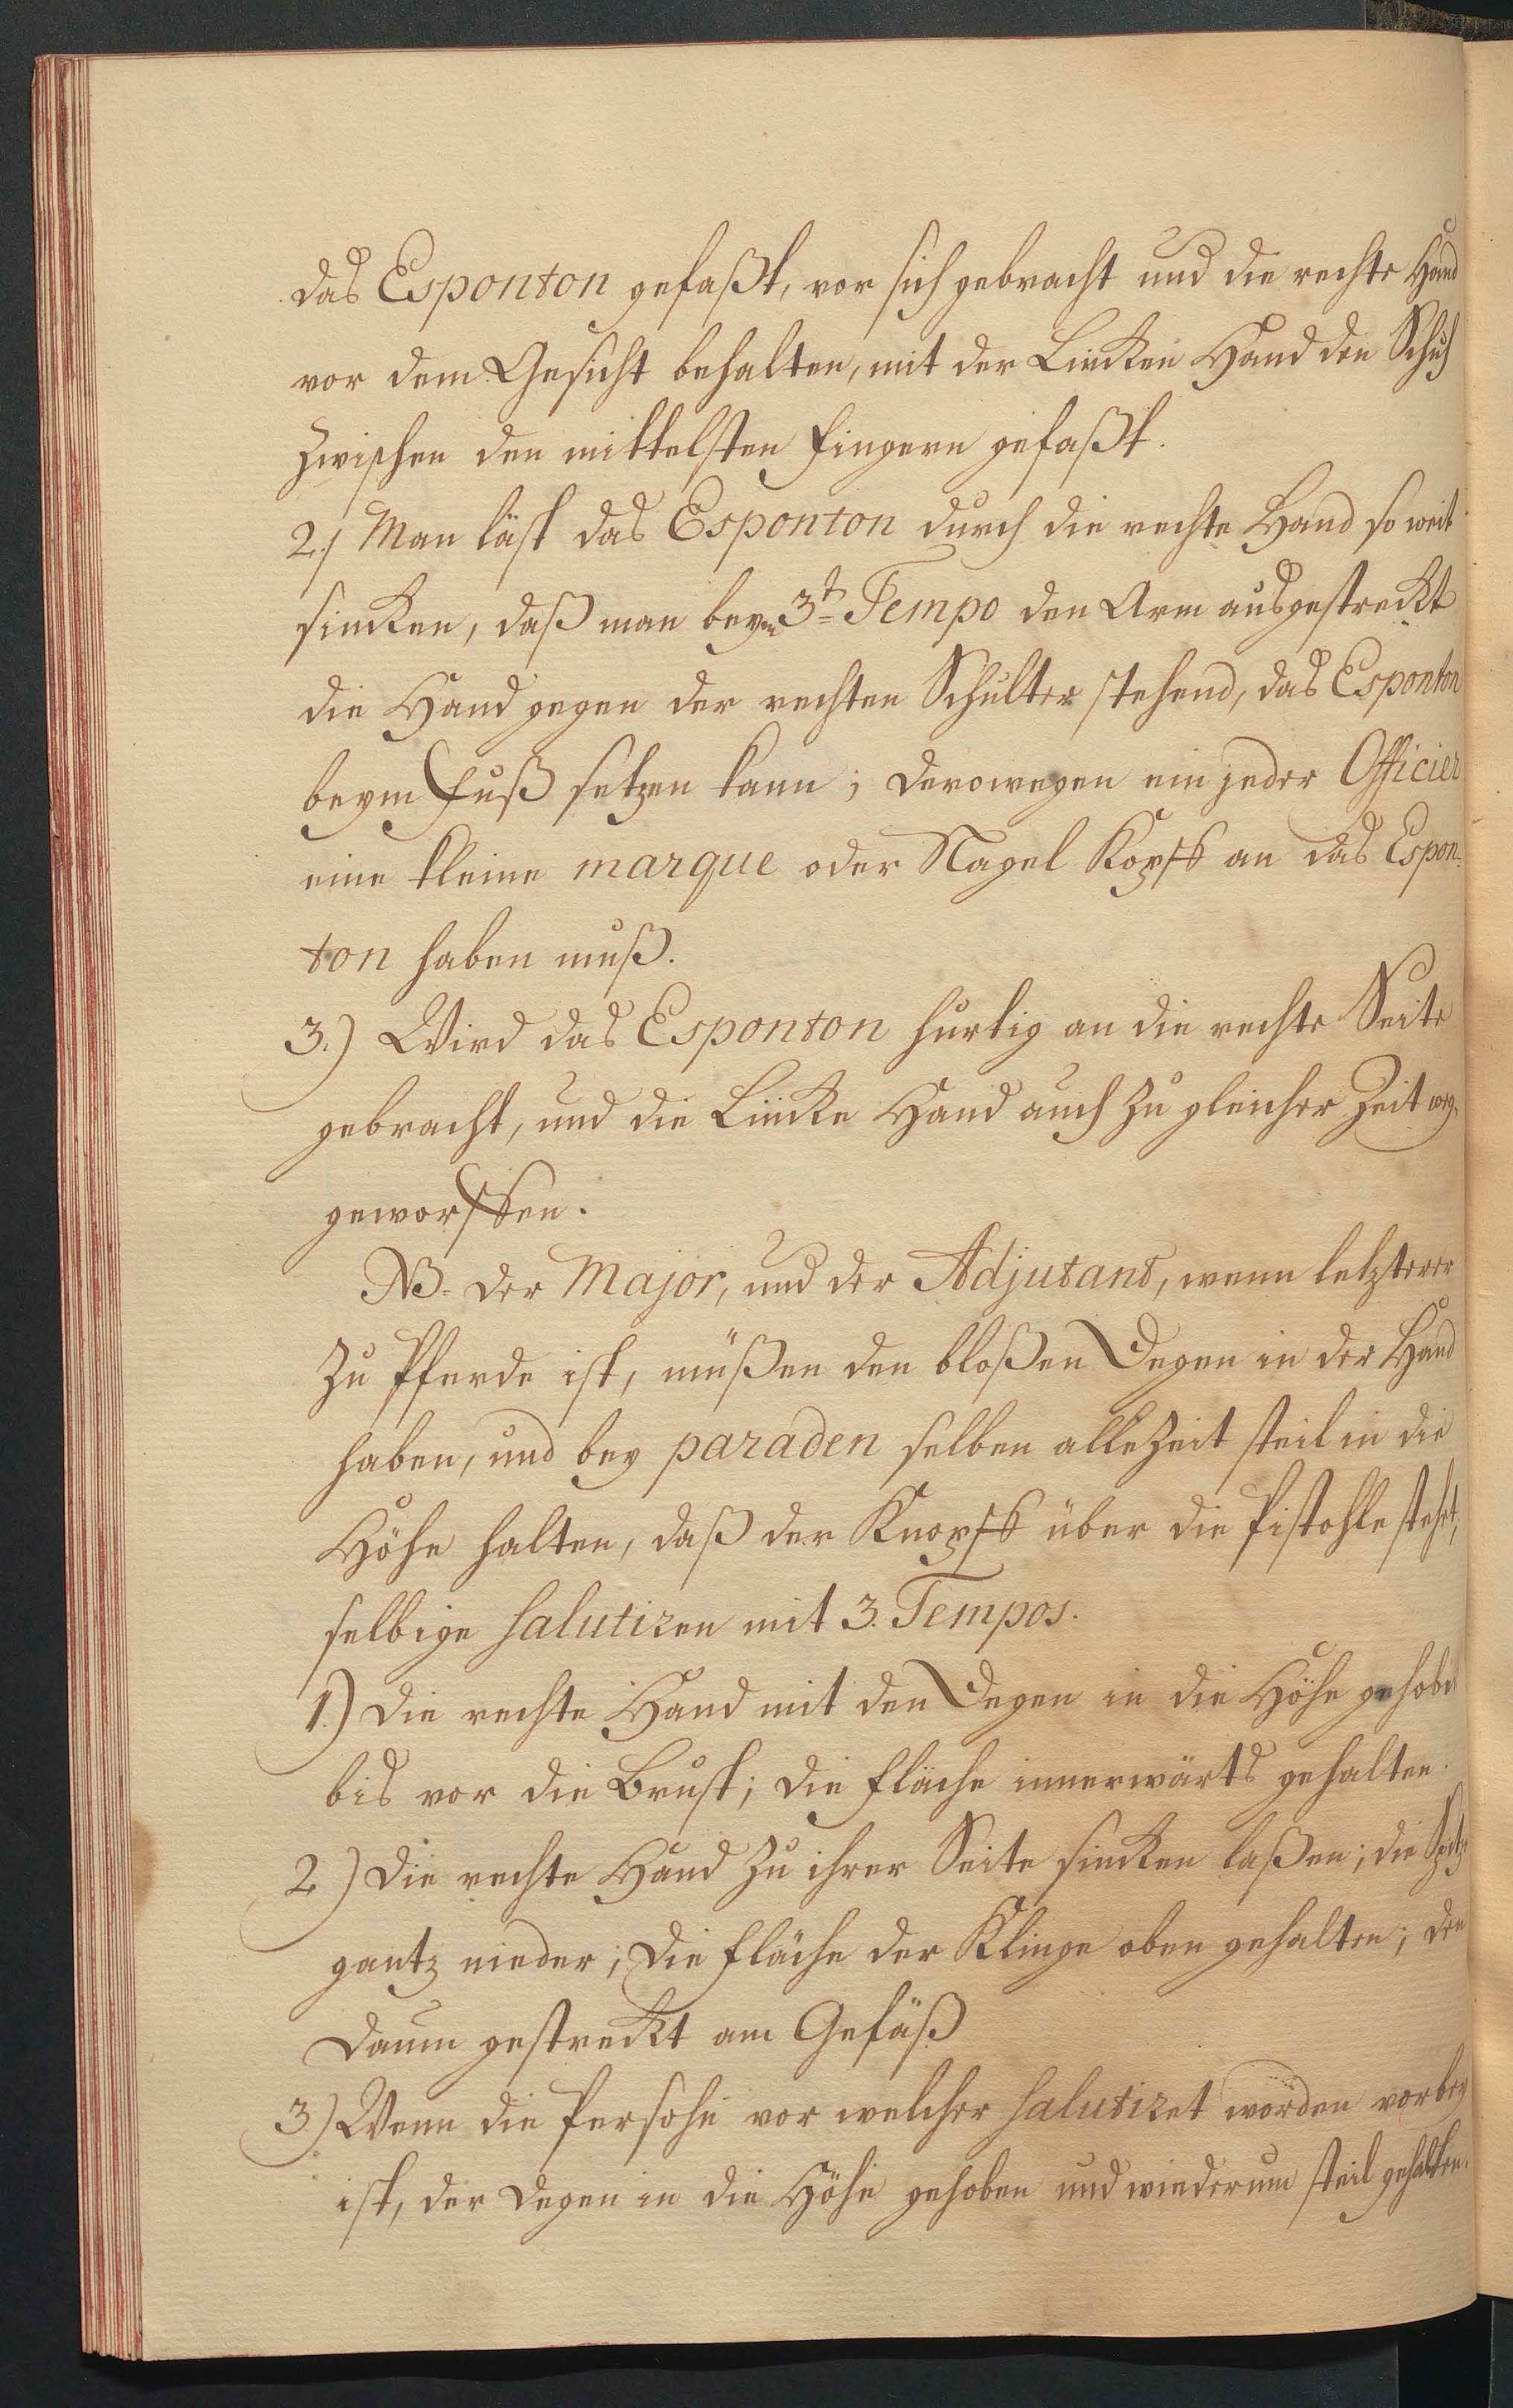 das Esponton gefaßt, vor sich gebracht und die rechte Hand
vor dem Gesicht behalten, mit der Lincken Hand den Schuh
zwischen den mittelsten Fingern gefaßt.
2.) Man läst das Esponton durch die rechte Hand so weit
sincken, daß man beym 3t= Tempo den Arm ausgestreckt
die Hand gegen der rechten Schulter stehend, das Esponton
beym Fuß setzen kann; derowegen ein jeder Officier
eine kleine marque oder Nagel Kopff an das Espon-
ton haben muß.
3.) Wird das Esponton hurtig an die rechte Seite
gebracht, und die Lincke Hand auch zu gleicher Zeit weg-
geworffen.
NB. der Major, und der Adjutant, wenn letzterer
zu Pferde ist, müßen den bloßen Degen in der Hand
haben, und bey paraden selben allezeit steil in die
Höhe halten, daß der Knopff über die Pistohle stehet,
selbige salutiren mit 3. Tempos.
1.) die rechte Hand mit den Degen in die Höhe gehoben
bis vor die Brust; die Fläche innerwärts gehalten.
2.) die rechte Hand zu ihrer Seite sincken laßen; die Spitze
gantz nieder; die Fläche der Klinge oben gehalten; den
Daum gestreckt am Gefäß
3.) Wenn die Persohn vor welcher salutiret worden vorbey
ist, der Degen in die Höhe gehoben und wiederum steil gehalten.